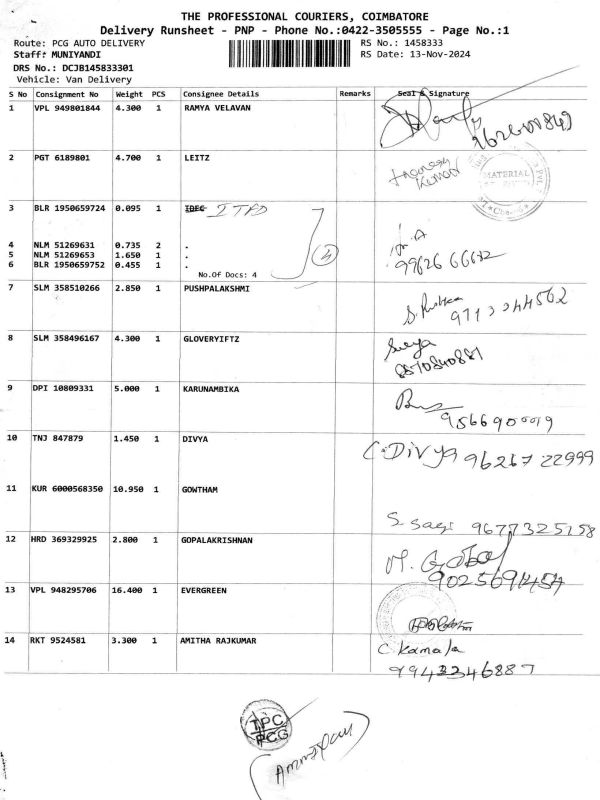 THE PROFESSIONAL COURIERS, COIMBATORE
Delivery Runsheet - PNP - Phone No.:0422-3505555 - Page No.:1
Route: PCG AUTO DELIVERY RS No.: 1458333
Staff: MUNIYANDI RS Date: 13-Nov-2024
DRS No.: DCJB145833301
Vehicle: Van Delivery
S No Consignment No Weight PCS Consignee Details Remarks Seal & Signature
1 VPL 949801844 4.300 1 RAMYA VELAVAN
2 PGT 6189801 4.700 1 LEITZ
Kumar
MATERIAL
3 BLR 1950659724 0.095 1 IDEC ITPD
4 NLM 51269631 0.735 2 .
5 NLM 51269653 1.650 1 .
6 BLR 1950659752 0.455 1 .
No.Of Docs: 4
4
99626 66632
7 SLM 358510266 2.850 1 PUSHPALAKSHMI
8 SLM 358496167 4.300 1 GLOVERYIFTZ
Surya
9 DPI 10809331 5.000 1 KARUNAMBIKA
10 TNJ 847879 1.450 1 DIVYA
C. DIVYA 96267 22999
11 KUR 6000568350 10.950 1 GOWTHAM
S. Sagi 9677325158
12 HRD 369329925 2.800 1 GOPALAKRISHNAN
M. Gobal
9025691454
13 VPL 948295706 16.400 1 EVERGREEN
14 RKT 9524581 3.300 1 AMITHA RAJKUMAR
C Kamala
9943346887
TPC
PCG